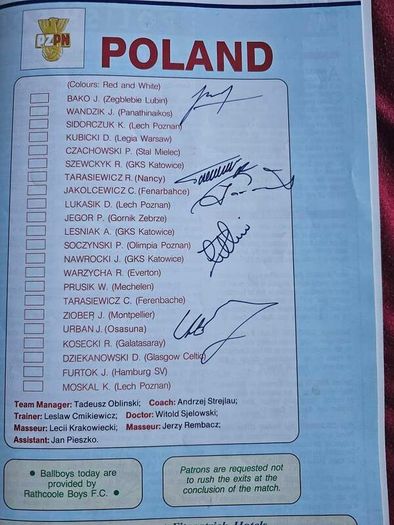 PZPN
POLAND
(Colours: Red and White)
BAKO J. (Zegblebie Lubin)
WANDZIK J. (Panathinaikos)
SIDORCZUK K. (Lech Poznan)
KUBICKI D. (Legia Warsaw)
CZACHOWSKI P. (Stal Mielec)
SZEWCKYK R. (GKS Katowice)
TARASIEWICZ R. (Nancy)
JAKOLCEWICZ C. (Fenarbahce)
LUKASIK D. (Lech Poznan)
JEGOR P. (Gornik Zebrze)
LESNIAK A. (GKS Katowice)
SOCZYNSKI P. (Olimpia Poznan)
NAWROCKI J. (GKS Katowice)
WARZYCHA R. (Everton)
PRUSIK W. (Mechelen)
TARASIEWICZ C. (Ferenbache)
ZIOBER J. (Montpellier)
URBAN J. (Osasuna)
KOSECKI R. (Galatasaray)
DZIEKANOWSKI D. (Glasgow Celtic)
FURTOK J. (Hamburg SV)
MOSKAL K. (Lech Poznan)
Team Manager: Tadeusz Oblinski; Coach: Andrzej Strejlau;
Trainer: Leslaw Cmikiewicz; Doctor: Witold Sjelowski;
Masseur: Lecii Krakowiecki; Masseur: Jerzy Rembacz;
Assistant: Jan Pieszko.
• Ballboys today are
provided by
Rathcoole Boys F.C. •
Patrons are requested not
to rush the exits at the
conclusion of the match.